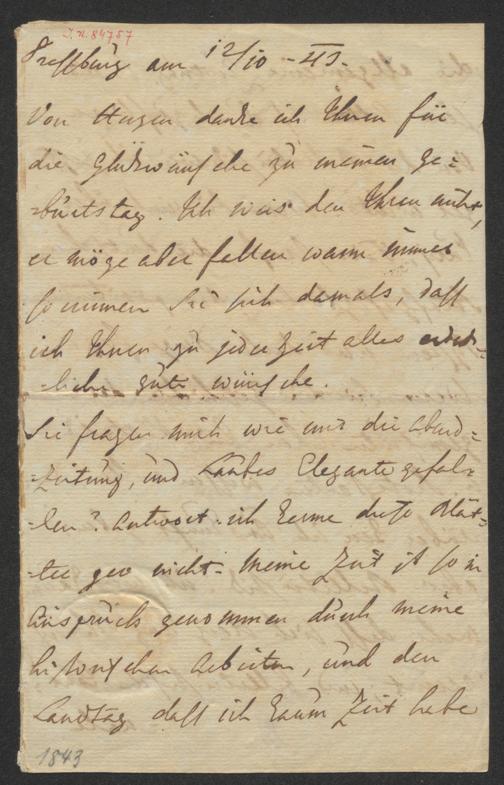 I.N. 84757
Pressburg am 12/10 - 43.
Von Herzen danke ich Ihnen für
die Glükwünsche zu meinem Ge=
=burtstag. Ich weis den Ihren nicht,
er möge aber fallen wann immer
so erinnern Sie sich damals, daß
ich Ihnen zu jeder Zeit alles erdenk=
=liche gute wünsche.
Sie fragen mich wie mir die Abend=
=Zeitung, und Laubes Elegante gefal=
=len? Antwort. ich kenne diese Blät=
=ter gar nicht. Meine Zeit ist so in
Anspruch genommen durch meine
historischen Arbeiten, und den
Landtag daß ich kaum Zeit habe
1843